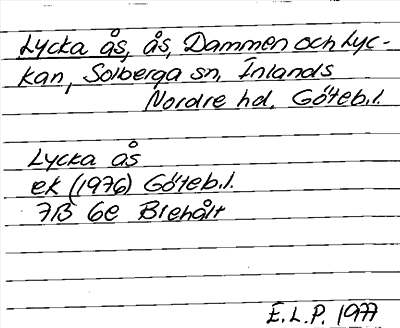 Lycka ås, ås, Dammen och Lyc-
kan, Solberga sn, Inlands
Nordre hd. Göteb.l.
Lycka ås
ek (1976) Göteb.l.
7B 6e Blehålt
E.L.P. 1977